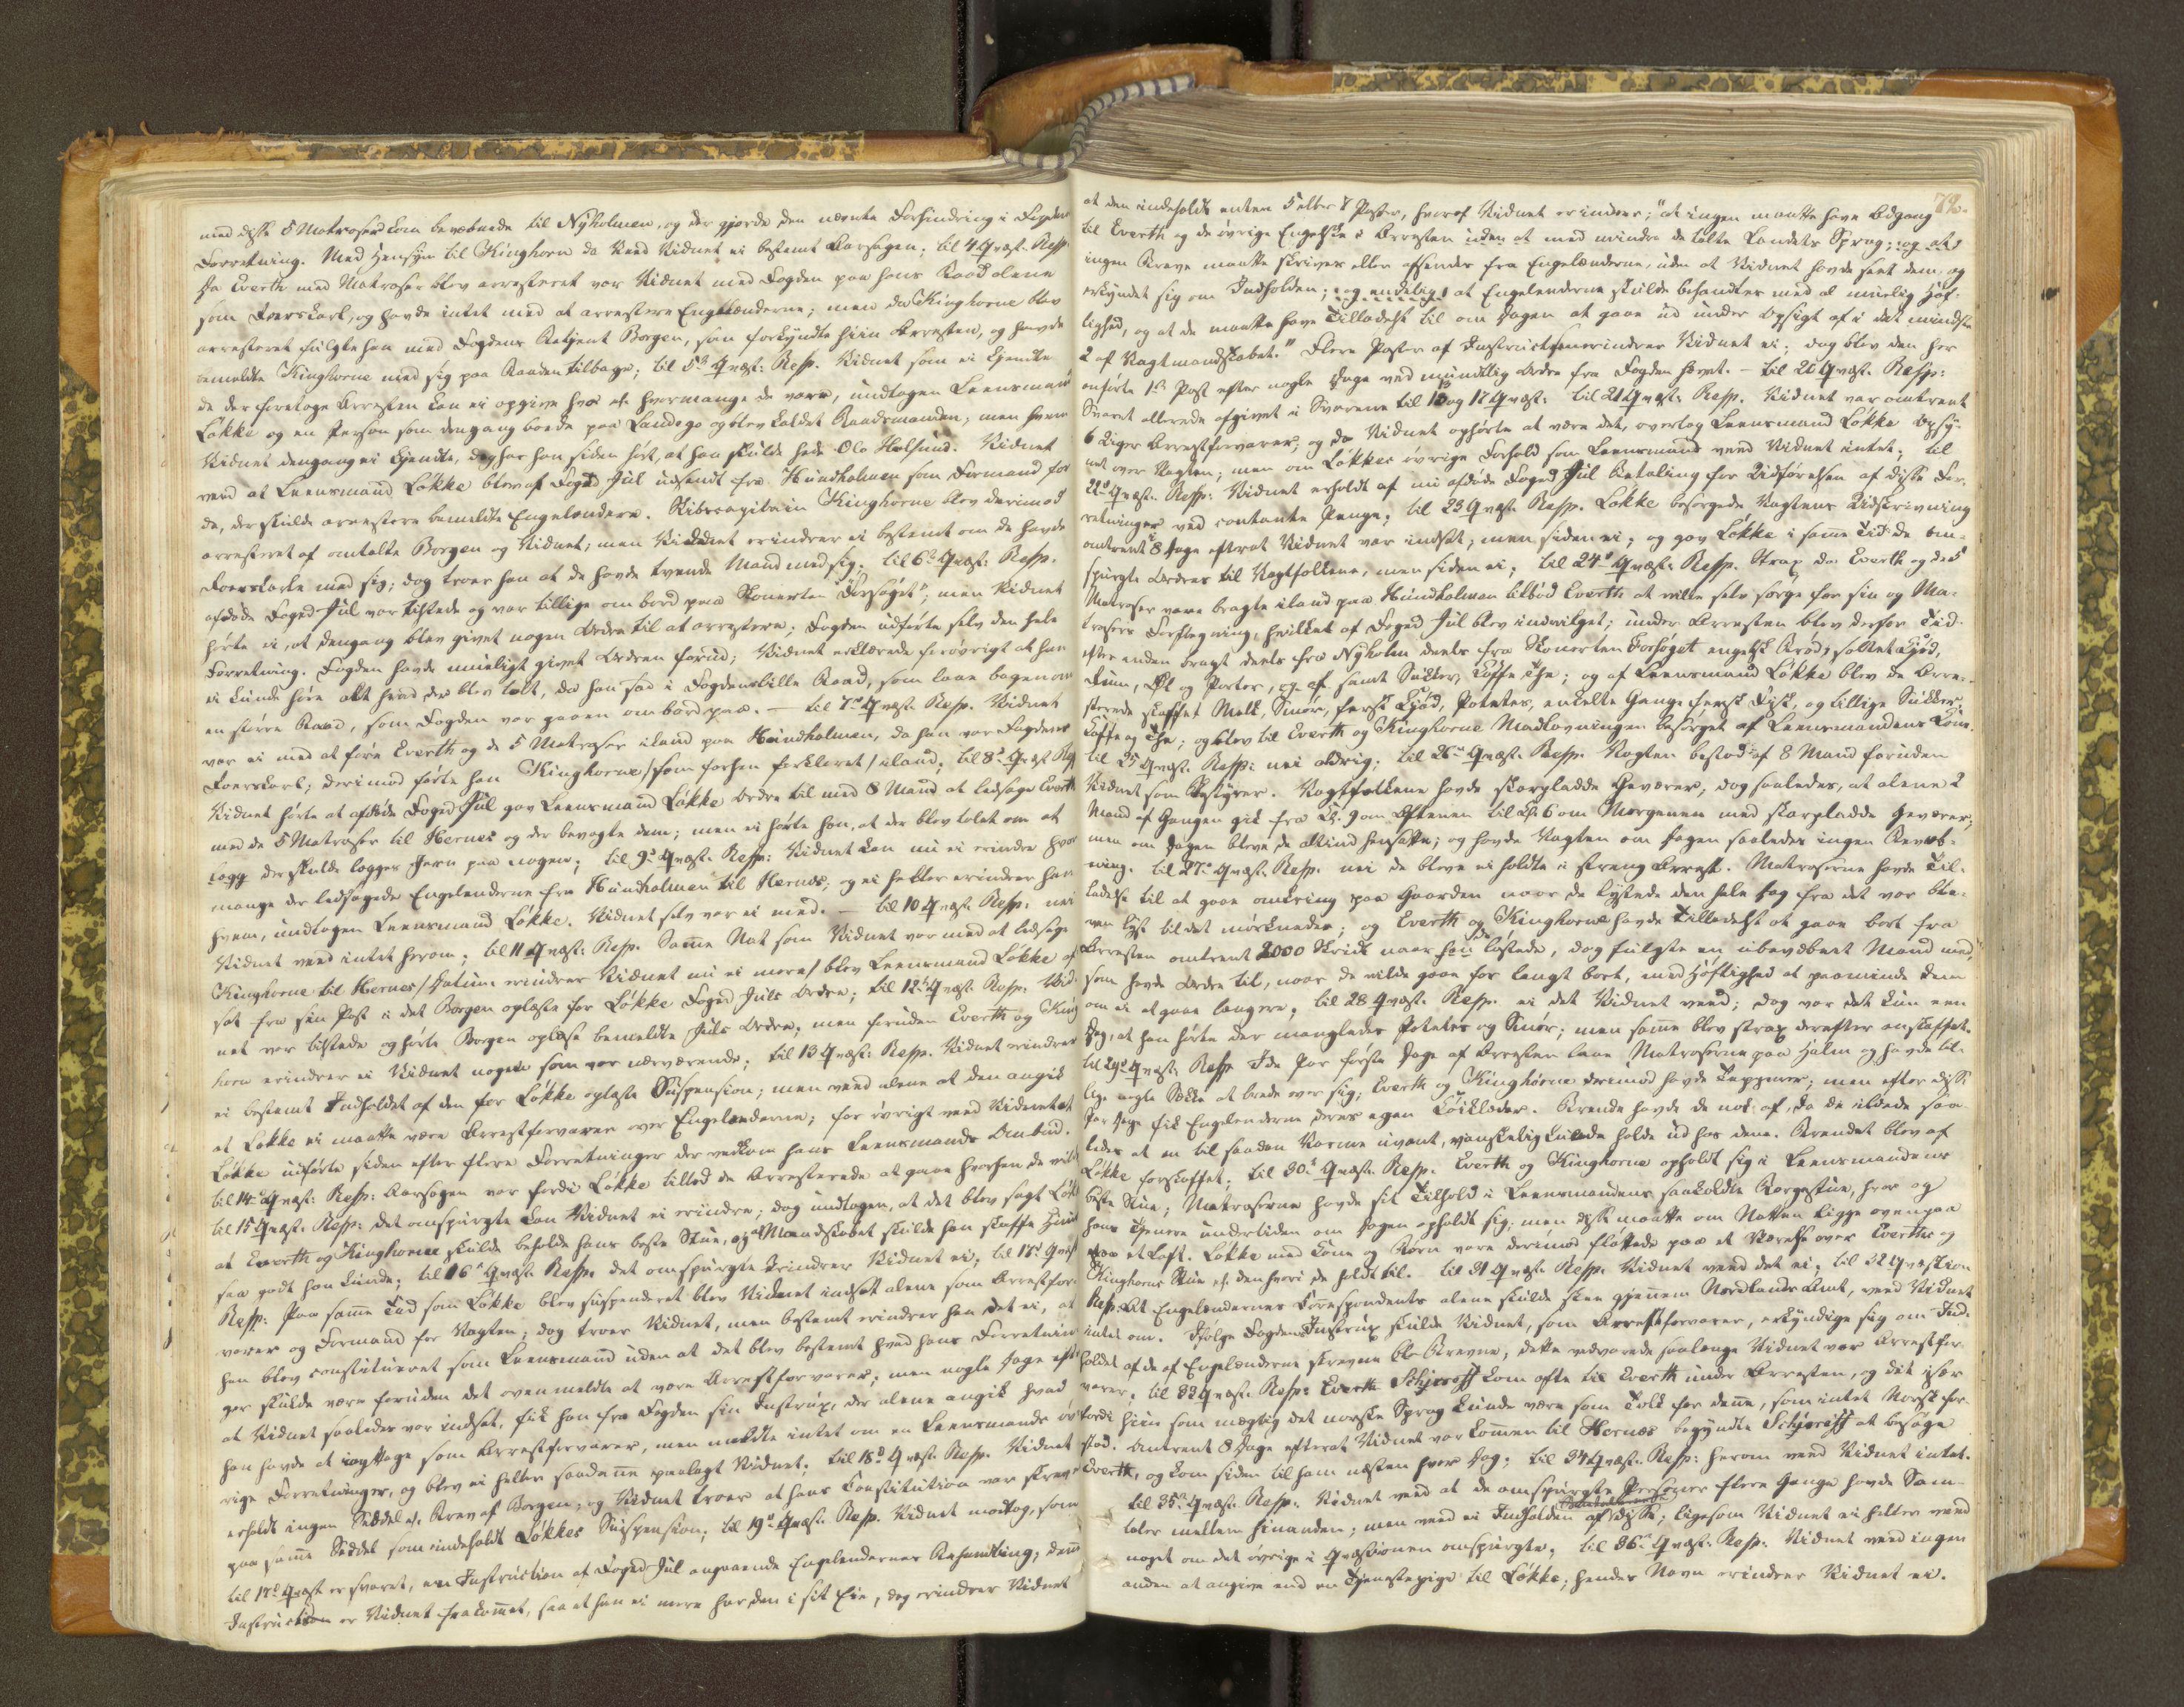 med disse 5 Matroser kom bevæbnede til Nyholmen, og der gjorde den nævnte Forhindring i Fogdens
Forretning. Med Hensyn til Kinghorn da veed Vidnet ei bestemt Aarsagen; til 4 Qvæst. Resp.
Da Everth med Matroser blev arresteret var Vidnet med Fogden paa hans Baad alene
som Foerskarl, og havde intet med at arrestere Engelænderne; men da Kinghorne blev
arresteret fulgte han med Fogdens Betjent Borgen, som forkyndte hiin Arresten, og havde
bemeldte Kinghorne med sig paa Baaden tilbage; til 5te Qvæst: Resp. Vidnet som ei kjendte
de der foretoge Arresten kan ei opgive hvo eller hvormange de vare, undtagen Leensmand
Løkke og en Person som dengang boede paa Landego og blev kaldet Raadsmanden; men hvem
Vidnet dengang ei kjendte, dog har han siden hørt, at han skulde hede Ole Helsund. Vidnet
veed at Leensmand Løkke blev af Foged Jül udsendt fra Hundholmen som Formand for
de, der skulde arrestere bemeldte Engelændere. Skibscapitain Kinghorne blev derimod
arresteret af omtalte Borgen og Vidnet; men Vidnet erindrer ei bestemt om de havde
Foerskarle med sig; dog troer han at de havde tvende Mand med sig; til 6te Qvæst: Resp.
afdøde Foged Jül var tilstede og var tillige om bord paa Skonerten "Forsøget"; men Vidnet
hørte ei, at dengang blev givet nogen Ordre til at arrestere; Fogden udførte selv den hele
Forretning. Fogden havde mueligt givet Ordren forud; Vidnet erklærede forøvrigt at han
ei kunde høre alt hvad der blev talt, da han sad i Fogdens lille Baad, som laae bagenom
en større Baad, som Fogden var gaaen ombord paa. — til 7de Qvæst. Resp. Vidnet
var ei med at føre Everth og de 5 Matroser iland paa Hundholmen, da han var Fogdens
Foerskarl; derimod førte han Kinghorne /som forhen forklaret/ iland; til 8de Qvæst Resp
Vidnet hørte at afdøde Foged Jül gav Leensmand Løkke Ordre til med 8 Mand at ledsage Everth
med de 5 Matroser til Hernes og der bevogte dem; men ei hørte han, at der blev talet om at
der skulde lægges Jern paa nogen; til 9de Qvæst. Resp: Vidnet kan nu ei erindre hvor
mange der ledsagede Engelænderne fra Hundholmen til Hernes; og ei heller erindrer han
hvem, undtagen Leensmand Løkke. Vidnet selv var ei med. — til 10 Qvæst. Resp: nei
Vidnet veed intet herom; til 11 Qvæst: Resp. Samme Nat som Vidnet var med at ledsage
Kinghorne til Hernes /Datum erindrer Vidnet nu ei mere/ blev Leensmand Løkke af
sat fra sin Post i det Borgen oplæste for Løkke Foged Jüls Ordre; til 12te Qvæst Resp. Vid
net var tilstede og hørte Borgen oplæse bemeldte Jüls Ordre, men foruden Everth og King
horn erindrer ei Vidnet nogen som var nærværende; til 13 Qvæst: Resp. Vidnet erindrer
ei bestemt Indholdet af den for Løkke oplæste Suspension; men veed alene at den angik
at Løkke ei maatte være Arrestforvarer over Engelænderne; for øvrigt veed Vidnet at
Løkke udførte siden efter flere Forretninger der vedkom hans Leensmands Ombud.
til 14de Qvæst: Resp: Aarsagen var fordi Løkke tillod de Arresterede at gaae hvorhen de vilde
til 15 Qvæst. Resp: det omspurgte kan Vidnet ei erindre; dog undtagen, at det blev sagt Løkke
at Everth og Kinghorne skulde beholde hans beste Stue, og at Mandskabet skulde han skaffe Huus
saa godt han kunde; til 16de Qvæst. Resp: det omspurgte erindrer Vidnet ei; til 17de Qvæst
Resp: Paa samme Tid som Løkke blev suspenderet blev Vidnet indsat alene som Arrestfor-
varer og Formand for Vagten; dog troer Vidnet, men bestemt erindrer han det ei, at
han blev constitueret som Leensmand uden at det blev bestemt hvad hans Forretnin
ger skulde være foruden det ovenmeldte at være Arrestforvarer; men nogle Dage efter
at Vidnet saaledes var indsat, fik han fra Fogden sin Instrux, der alene angik hvad
han havde at iagttage som Arrestforvarer, men meldte intet om en Leensmands øv
rige Forretninger, og blev ei heller saadanne paalagt Vidnet; til 18de Qvæst. Resp. Vidnet
erholdt ingen Seddel el. Brev af Borgen; og Vidnet troer at hans Constitution var skrevet
paa samme Seddel som indeholdt Løkkes Suspension; til 19de Qvæst. Resp. Vidnet modtog, som
til 17de Qvæst er svaret, en Instruction af Foged Jül angaaende Engelændernes Behandling; denne
Instruction er Vidnet frakommet, saa at han ei mere har den i sit Eie, dog erindrer Vidnet
72.
at den indeholdt enten 5 eller 7 Poster, hvoraf Vidnet erindrer; "at ingen maatte have Adgang
til Everth og de øvrige Engelske i Arresten uden at med mindre de talte Landets Sprog; og at
ingen Breve maatte skrives eller afsendes fra Engelænderne, uden at Vidnet havde seet dem, og
erkyndet sig om Indholden; og endelig at Engelænderne skulde behandles med al muelig Høf-
lighed, og at de maatte have Tilladelse til om Dagen at gaae ud under Opsigt af i det mindste
2 af Vagtmandskabet." Flere Poster af Instructionen erindrer Vidnet ei; dog blev den her
anførte 1ste Post efter nogle Dage ved mundtlig Ordre fra Fogden hævet. — til 20 Qvæst. Resp:
Svaret allerede afgivet i Svarene til 13 og 17 Qvæst: til 21 Qvæst: Resp. Vidnet var omtrent
6 Uger Arrestforvarer, og da Vidnet ophørte at være det, overtog Leensmand Løkke Opsy-
net over Vagten; men om Løkkes øvrige Forhold som Leensmand veed Vidnet intet; til
22de Qvæst. Resp: Vidnet erholdt af nu afdøde Foged Jül Betaling for Udførelsen af disse For-
retninger ved contante Penge; til 23 Qvæst. Resp. Løkke besørgede Vagtens Udskrivning
omtrent 8 Dage efterat Vidnet var indsat; men siden ei; og gav Løkke i samme Tid de om-
spurgte Ordrer til Vagtfolkene, men siden ei; til 24de Qvæst. Resp. Strax da Everth og de 5
Matroser vare bragte iland paa Hundholmen tilbød Everth at ville selv sørge for sin og Ma-
trosers Forplegning, hvilket af Foged Jül blev indvilget; under Arresten blev derfor Tid
efter anden bragt deels fra Nyholm deels fra Skonerten Forsøget engelsk Brød, saltet Kjød,
Rum, Øl og Porter, og samt Sukker, Caffe, The; og af Leensmand Løkke blev de Arre-
sterede skaffet Melk, Smør, fersk Kjød, Potetes, enkelte Gange fersk Fisk, og tillige Sukker,
Caffe og The; og blev til Everth og Kinghorne Madlavningen besørget af Leensmandens Kone.
til 25 Qvæst. Resp: nei aldrig; til 26de Qvæst. Resp. Vagten bestod af 8 Mand foruden
Vidnet som Bestyrer. Vagtfolkene havde skarpladde Geværer, dog saaledes, at alene 2
Mand af Gangen gik fra Kl. 9 om Aftenen til Kl. 6 om Morgenen med skarpladde Geværer;
men om Dagen bleve de altid hensatte; og havde Vagten om Dagen saaledes ingen Bevæb-
ning. til 27de Qvæst. Resp. nei de bleve ei holdte i streng Arrest. Matroserne havde Til-
ladelse til at gaae omkring paa Gaarden naar de lystede den hele Dag fra det var ble-
ven lyst til det mørknedes; og Everth og Kinghorne havde Tilladelse at gaae bort fra
Arresten omtrent 2000 Skridt naar lystede, dog fulgte en ubevæbnet Mand med,
som havde Ordre til, naar de vilde gaae for langt bort, med Høflighed at paaminde dem
om ei at gaae længere; til 28 Qvæst. Resp. ei det Vidnet veed; dog var det kun een
Dag, at han hørte der manglede Potetes og Smør; men samme blev strax derefter anskaffet.
til 29de Qvæst. Resp. I de Par første Dage af Arresten laae Matroserne paa Halm og havde til-
lige nogle Sække at brede over sig; Everth og Kinghorne derimod havde Tæpperer; men efter disse
Par Dage fik Engelænderne deres egen Køiklæder. Brænde havde de nok af, da de ildede saa-
ledes at en til saadan Varme uvant, vanskelig kunde holde ud hos dem. Brændet blev af
Løkke forskaffet; til 30te Qvæst. Resp. Everth og Kinghorne opholdt sig i Leensmandens
beste Stue; Matroserne havde sit Tilhold i Leensmandens saakaldte Borgestue, hvor og
hans Tjenere undertiden om Dagen opholdt sig; men disse maatte om Natten ligge ovenpaa
paa et Loft. Løkke med Kone og Børn vare derimod flyttede paa et Værelse over Everths og
Kinghorns Stue el. den hvori de holdt til. til 31 Qvæst. Resp. Vidnet veed det ei; til 32 Qvæstion
Resp. At Engelændernes Correspondents alene skulde skee gjennem Nordlands Amt, veed Vidnet
intet om. Ifølge Fogdens Instrux skulde Vidnet, som Arrestforvarer, erkyndige sig om Ind-
holdet af de af Engelænderne skrevne Brevene; dette vedvarede saalænge Vidnet var Arrestfor-
varer; til 33 Qvæst. Resp: Schjereff kom ofte til Everth under Arresten, og det især
fordi hiin som mægtig det norske Sprog kunde være som Tolk for denne, som intet Norsk for-
stod. Omtrent 8 Dage efterat Vidnet var kommen til Hernes begyndte Schjereff at besøge
Everth, og kom siden til ham næsten hver Dag; til 34 Qvæst. Resp: herom veed Vidnet intet.
til 35te Qvæst. Resp: Vidnet veed at de omspurgte Personer flere Gange havde Sam-
taler mellem hinanden; men veed ei Indholden af disse; ligesom Vidnet ei heller veed
noget om det øvrige i Qvæstionen omspurgte; til 36te Qvæst. Resp: Vidnet veed ingen
anden at angive end en Tjenestepige til Løkke; hendes Navn erindrer Vidnet ei.